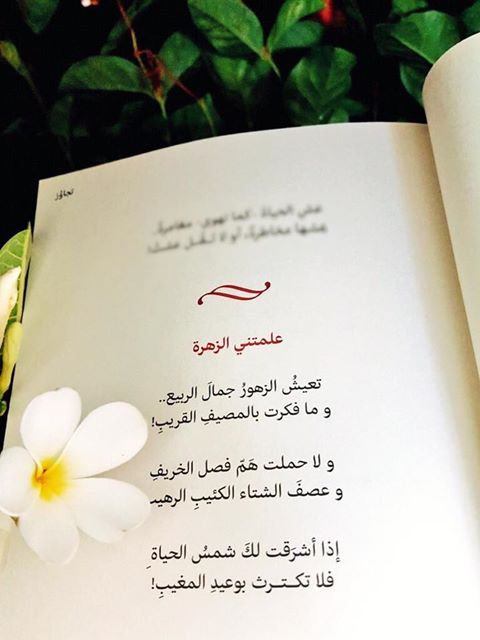 تجاوُز
علمتني الزهرة
تعيشُ الزهورُ جمالَ الربيع..
و ما فكرت بالمصيفِ القريبِ!
و لا حملت هَمّ فصل الخريفِ
و عصفَ الشتاء الكئيبِ الرهيب
إذا أشرَقت لكَ شمسُ الحياةِ
فلا تكـتـرث بوعيدِ المغيبِ!